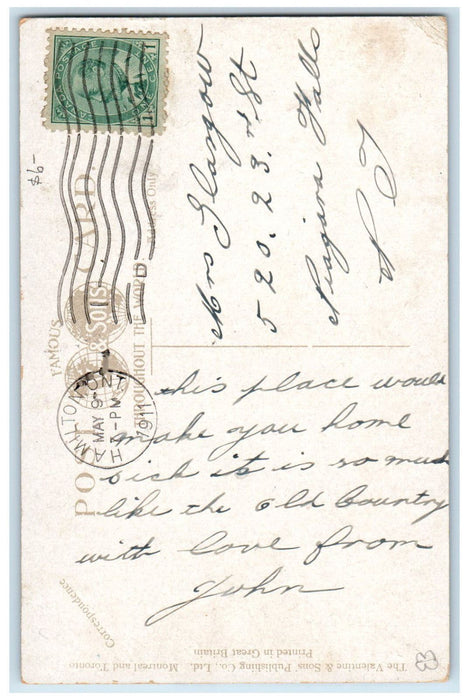 CANADA POSTAGE
1 1
$6-
POST CARD
Address Only
FAMOUS
& SONS
THROUGHOUT THE WORLD
HAMILTON ONT
MAY 9
-PM
1911
Mrs Glasgow
520. 23. rd St
Niagara Falls
N Y
this place would
make you home
sick it is so much
like the old Country
with love from
John
Correspondence
The Valentine & Sons Publishing Co., Ltd. Montreal and Toronto
Printed in Great Britain